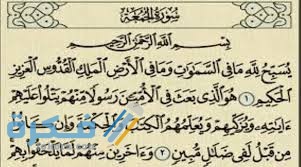 سُورَةُ الجُمُعَةِ
بِسْمِ اللَّهِ الرَّحْمَٰنِ الرَّحِيمِ
يُسَبِّحُ لِلَّهِ مَا فِي السَّمَٰوَٰتِ وَمَا فِي الْأَرْضِ الْمَلِكِ الْقُدُّوسِ الْعَزِيزِ
الْحَكِيمِ ١ هُوَ الَّذِي بَعَثَ فِي الْأُمِّيِّينَ رَسُولًا مِّنْهُمْ يَتْلُوا عَلَيْهِمْ
ءَايَٰتِهِ وَيُزَكِّيهِمْ وَيُعَلِّمُهُمُ الْكِتَٰبَ وَالْحِكْمَةَ وَإِن كَانُوا
مِن قَبْلُ لَفِي ضَلَٰلٍ مُّبِينٍ ٢ وَءَاخَرِينَ مِنْهُمْ لَمَّا يَلْحَقُوا بِهِمْ
فكرة